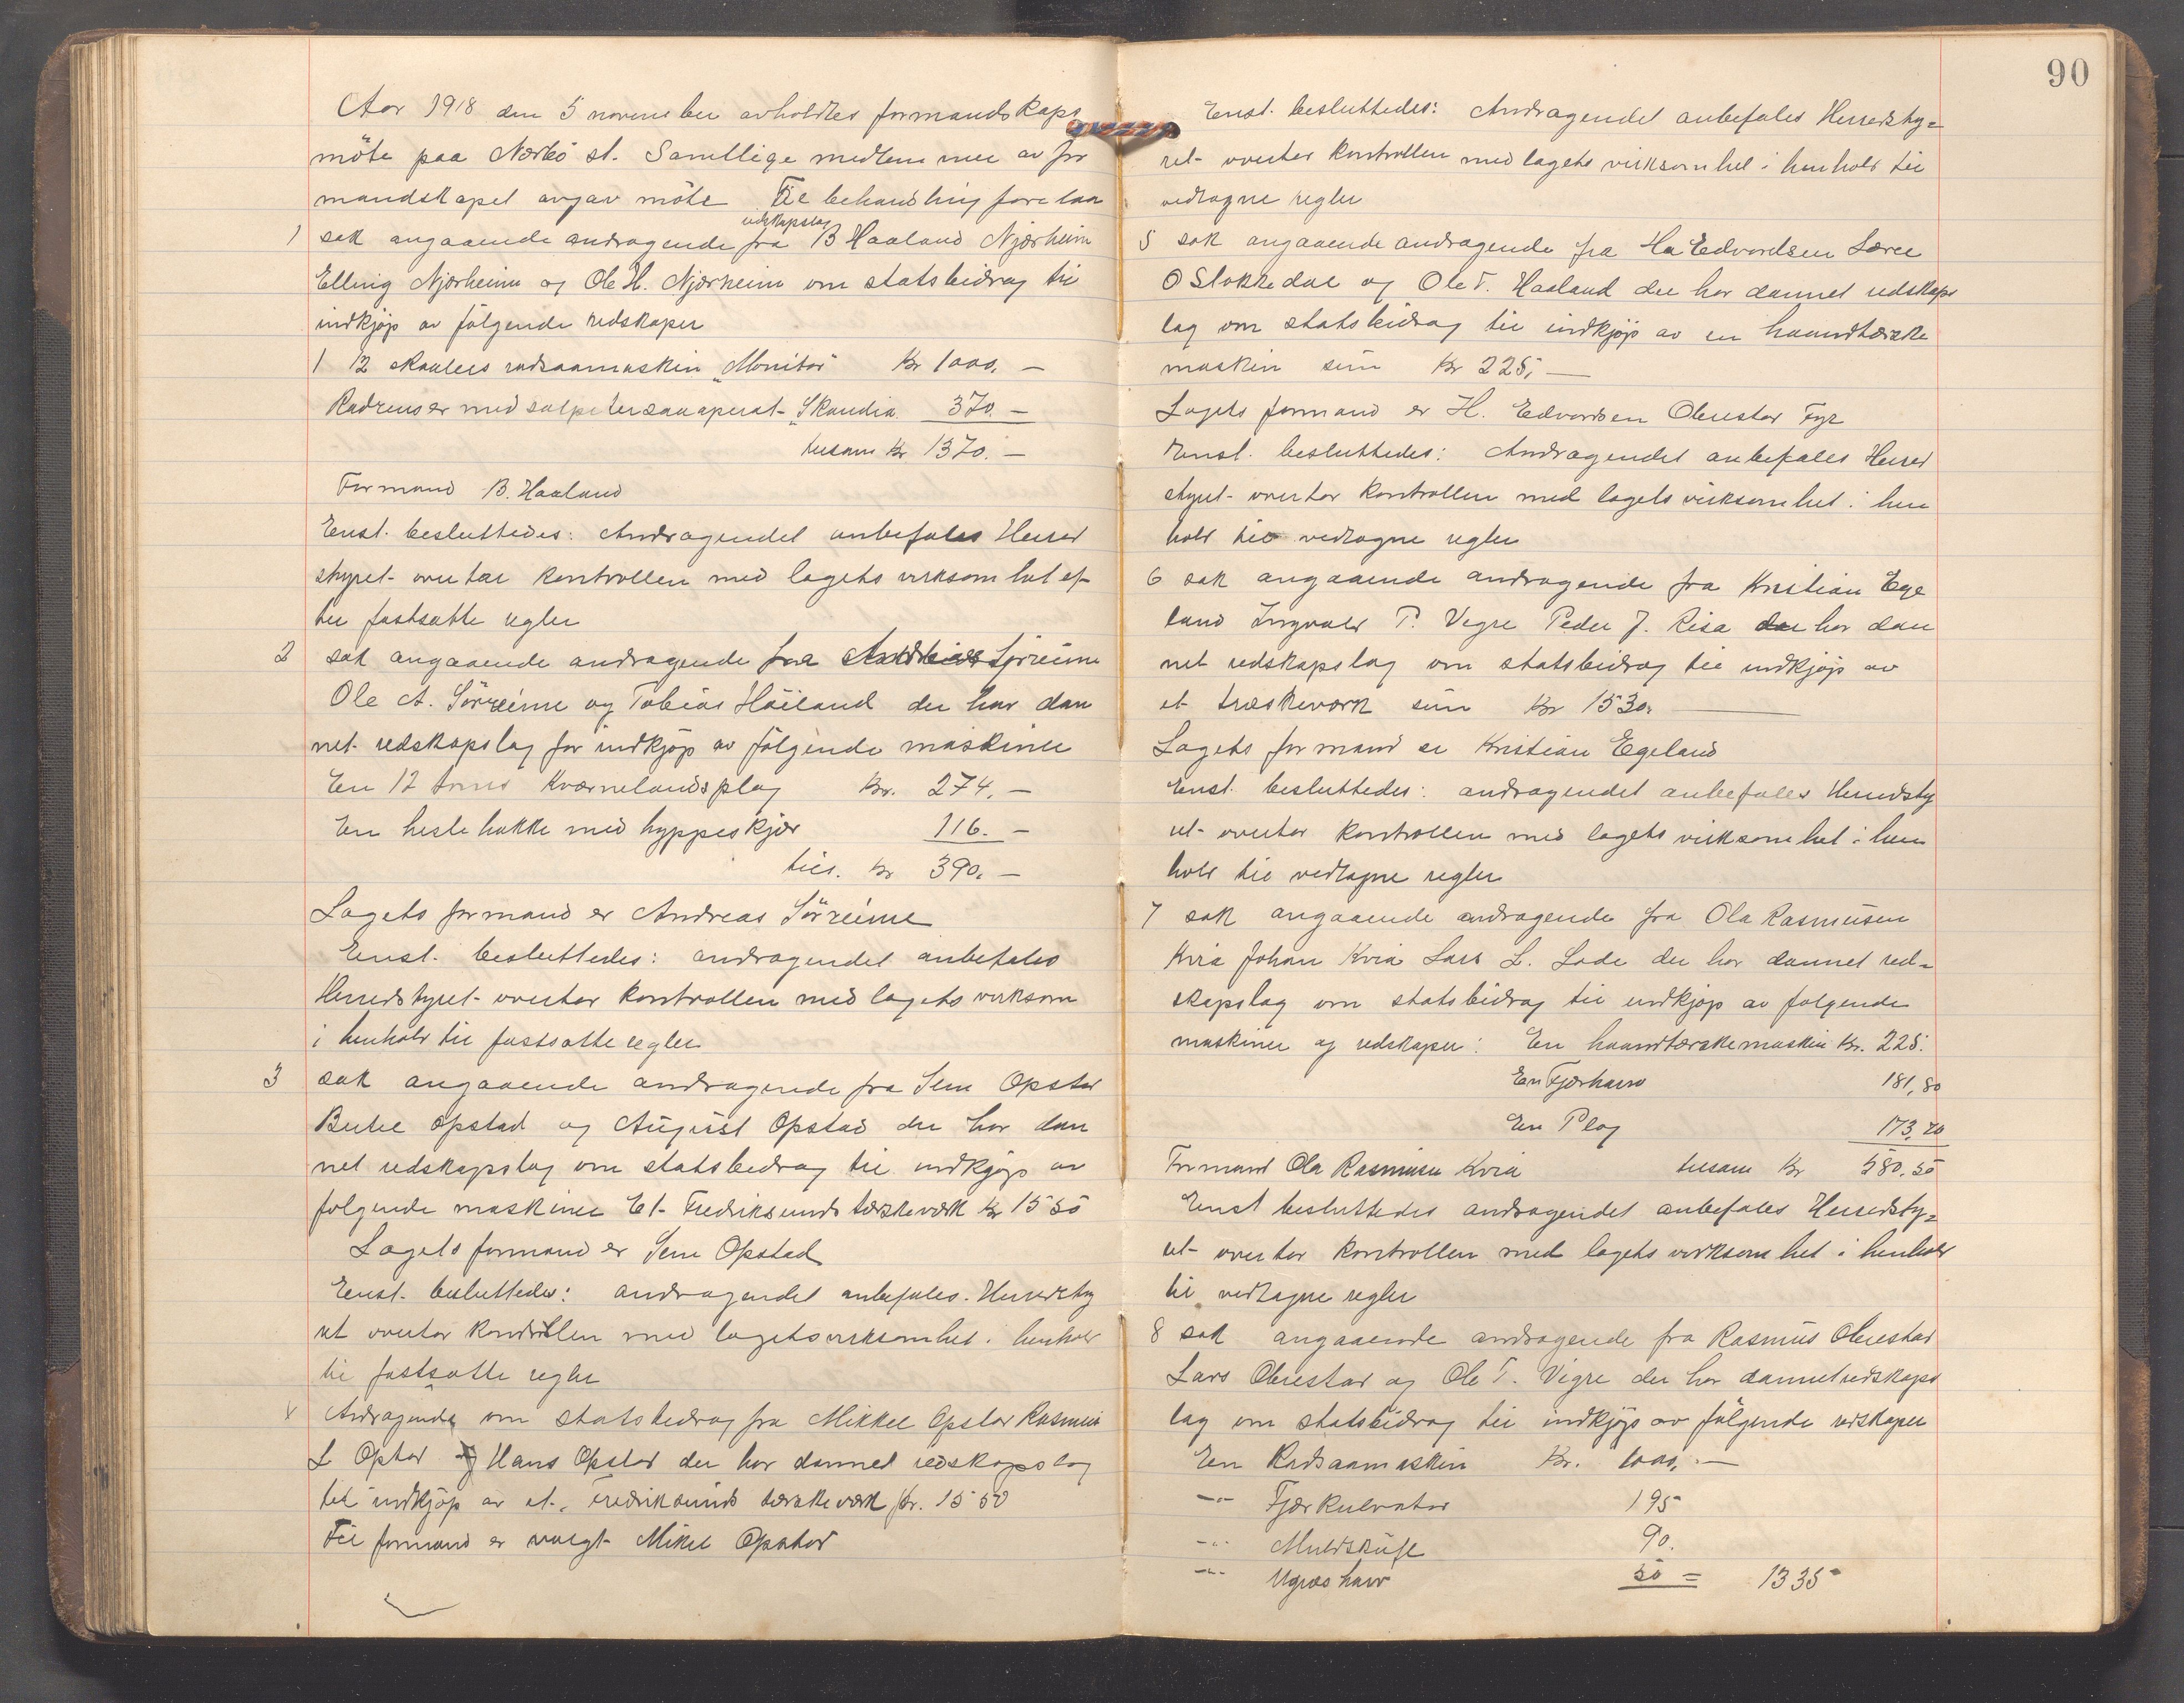 Aar 1918 den 5 november avholdtes formandskaps
möte paa Nærbö st. Samtlige medlemmer av for
mandskapet avgav möte Til behandling forelaa
redskapslag
1 sak angaaende andragende fra B Haaland Njærheim
Elling Njærheim og Ole H. Njærheim om statsbidrag til
indkjöp av fölgende redskaper
1 12 skaalers radsaamaskin „Monitor" Kr 1000. —
Radrenser med salpetersaaaperat „Skandia 370. —
tilsam Kr 1370. —
Formand B. Haaland
Enst. besluttedes: Andragendet anbefales Herred
styret overtar kontrollen med lagets virksomhet ef-
ter fastsatte regler
2 sak angaaende andragende fra Andreas Sörreime
Ole A. Sörreime og Tobias Höiland der har dan
net redskapslag for indkjöp av fölgende maskiner
En 12 toms Kværnelandsplog Kr. 274. —
En hestehakke med hyppeskjær 116. —
tils. Kr 390. —
Lagets formand er Andreas Sörreime
Enst. besluttedes: andragendet anbefales
Herredstyret overtar kontrollen med lagets virksom
i henhold til fastsatte regler
3 sak angaaende andragende fra Sem Opstad
Bertel Opstad og August Opstad der har dan
net redskapslag om statsbedrag til indkjöp av
folgende maskiner Et Fredriksunds tærskeværk Kr 1550
Lagets formand er Sem Opstad
Enst. besluttedes: andragendet anbefales. Herredsty
ret overtar kondrollen med lagets virksomhet i henhold
til fastsatte regler
4 Andragende om statsbedrag fra Mikkel Opstad Rasmus
L Opstad og Hans Opstad der har dannet redskapslag
til indkjöp av et Fredriksunds tærskeværk Kr. 1550
Til formand er valgt Mikel Opstad
90
Enst. besluttedes: Andragendet anbefales Herredsty=
ret overtar kontrollen med lagets virksomhet i henhold til
vedtagne regler
5 sak angaaende andragende fra H Edvardsen Lærer
O Stokkedal og Ole T. Haaland der har dannet redskaps
lag om statsbidrag til indkjöp av en haandtærske
maskin sum Kr 225, —
Lagets formand er H. Edvardsen Obrestad Fyr
Enst. besluttedes: Andragendet anbefales Herred
styret overtar kontrollen med lagets virksomhet i hen
hold til vedtagne regler
6 sak angaaende andragende fra Kristian Ege
land Ingvald P. Vigre Peder J. Risa der har dan
net redskapslag om statsbidrag til indkjöp av
et træskeværk sum Kr 1530. —
Lagets formand er Kristian Egeland
Enst. besluttedes: andragendet anbefales Herredsty
ret overtar kontrollen med lagets virksomhet i hen
hold til vedtagne regler
7 sak angaaende andragende fra Ola Rasmusen
Kvia Johan Kvia Lars L. Lode der har dannet red=
skapslag om statsbidrag til indkjöp av folgende
maskiner og redskaper: En haandtærskemaskin Kr. 225.
En Fjærharv 181,80
En Plog 173,70
Formand Ola Rasmusen Kvia tilsam Kr 580.50
Enst besluttedes andragendet anbefales Herredsty=
ret overtar kontrollen med lagets virksomhet i henhold
til vedtagne regler
8 sak angaaende andragende fra Rasmus Obrestad
Lars Obrestad og Ole T. Vigre der har dannet redskaps
lag om statsbidrag til indkjöp av fölgende redskaper
En Radsaamaskin Kr. 1000, —
-"- Fjærkulvator 195
-"- Muldskufl 90.
-"- Ugræsharv 50 = 1335